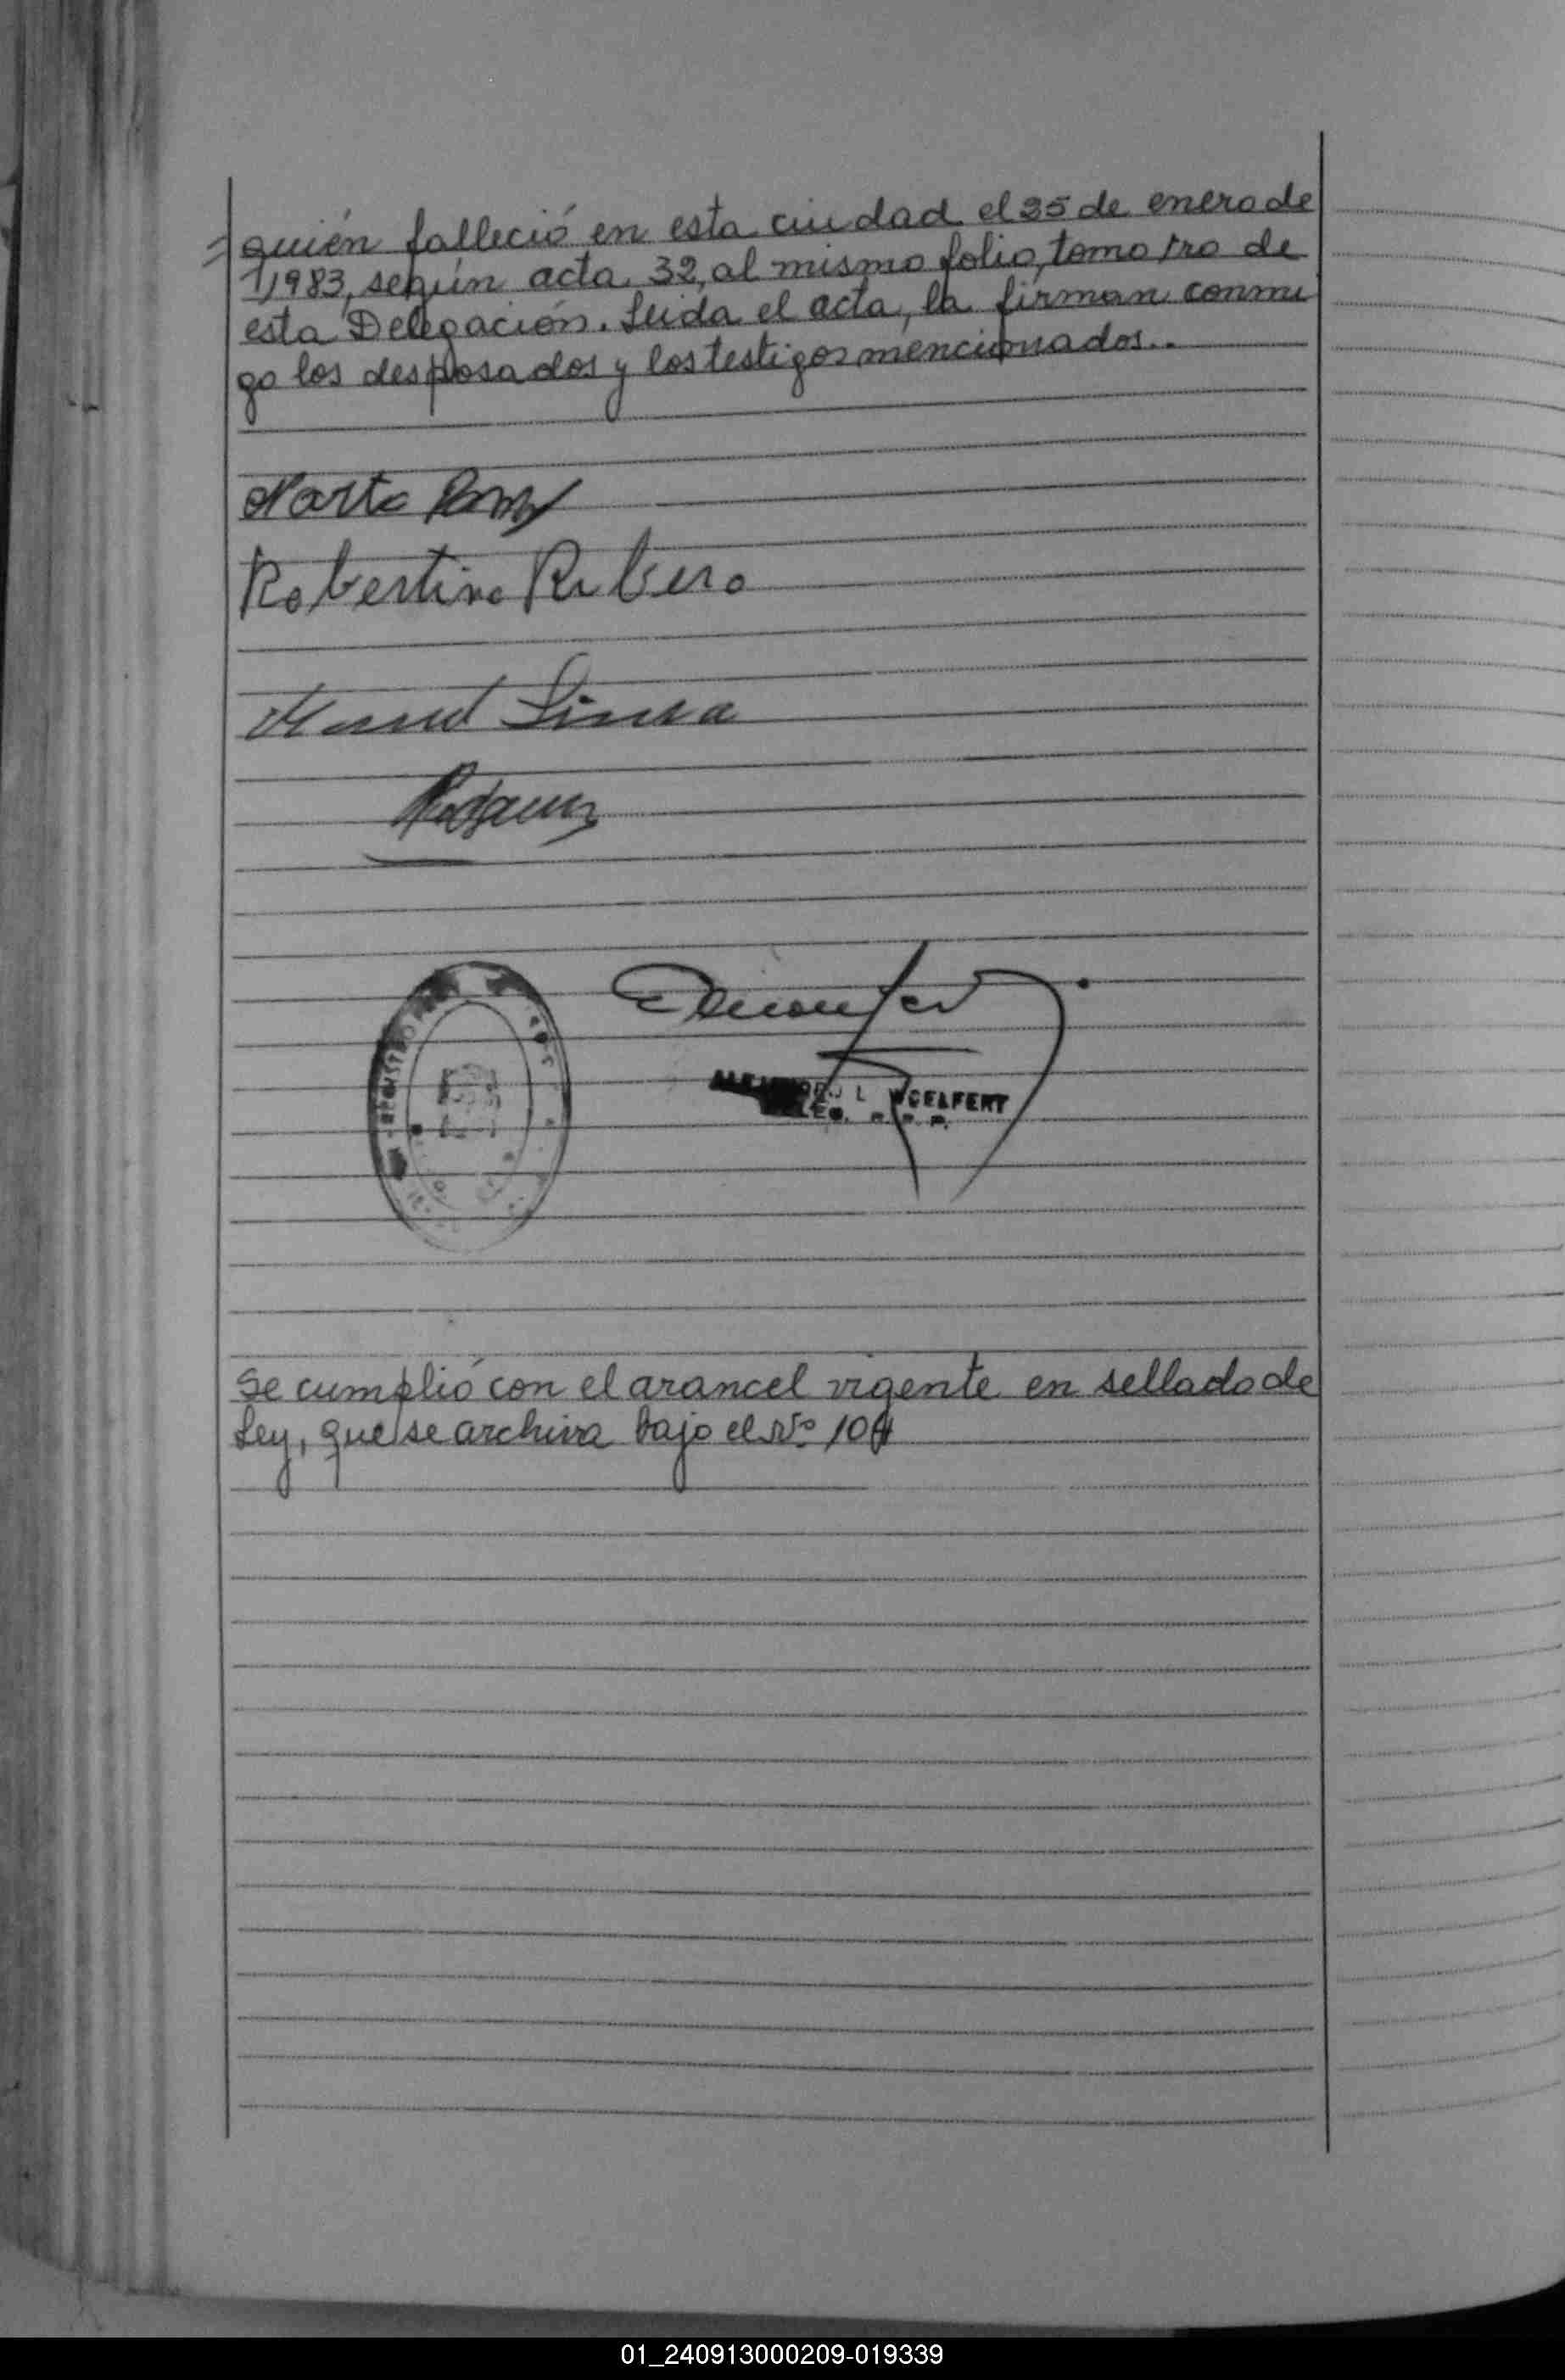 quién falleció en esta ciudad el 25 de enero de
1983, según acta 32, al mismo folio, tomo 1ro de
esta Delegación. Leida el acta, la firman conmi
go los desposados y los testigos mencionados..
Marta
Robertino Ribero
Manuel
WOELFERT
Se cumplió con el arancel vigente en sellado de
Ley, que se archiva bajo el Nº 104
01_240913000209-019339